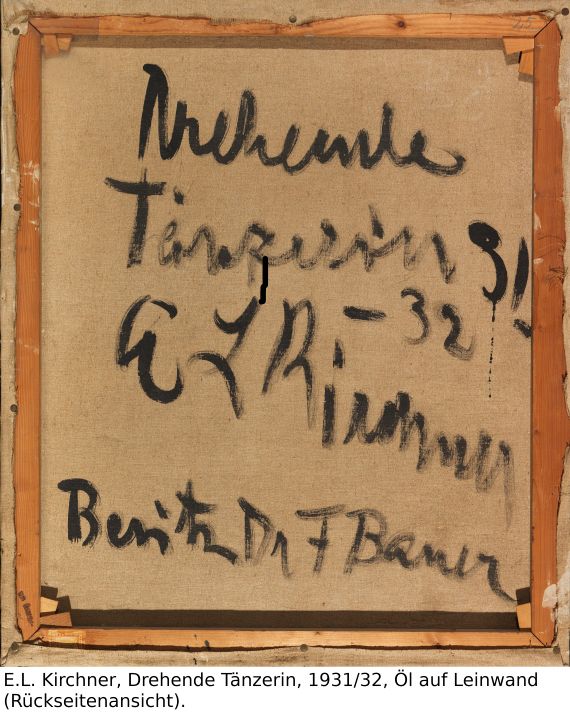 Drehende
Tänzerin 31/
- 32
E L Kirchner
Besitz Dr F Bauer
E.L. Kirchner, Drehende Tänzerin, 1931/32, Öl auf Leinwand
(Rückseitenansicht).